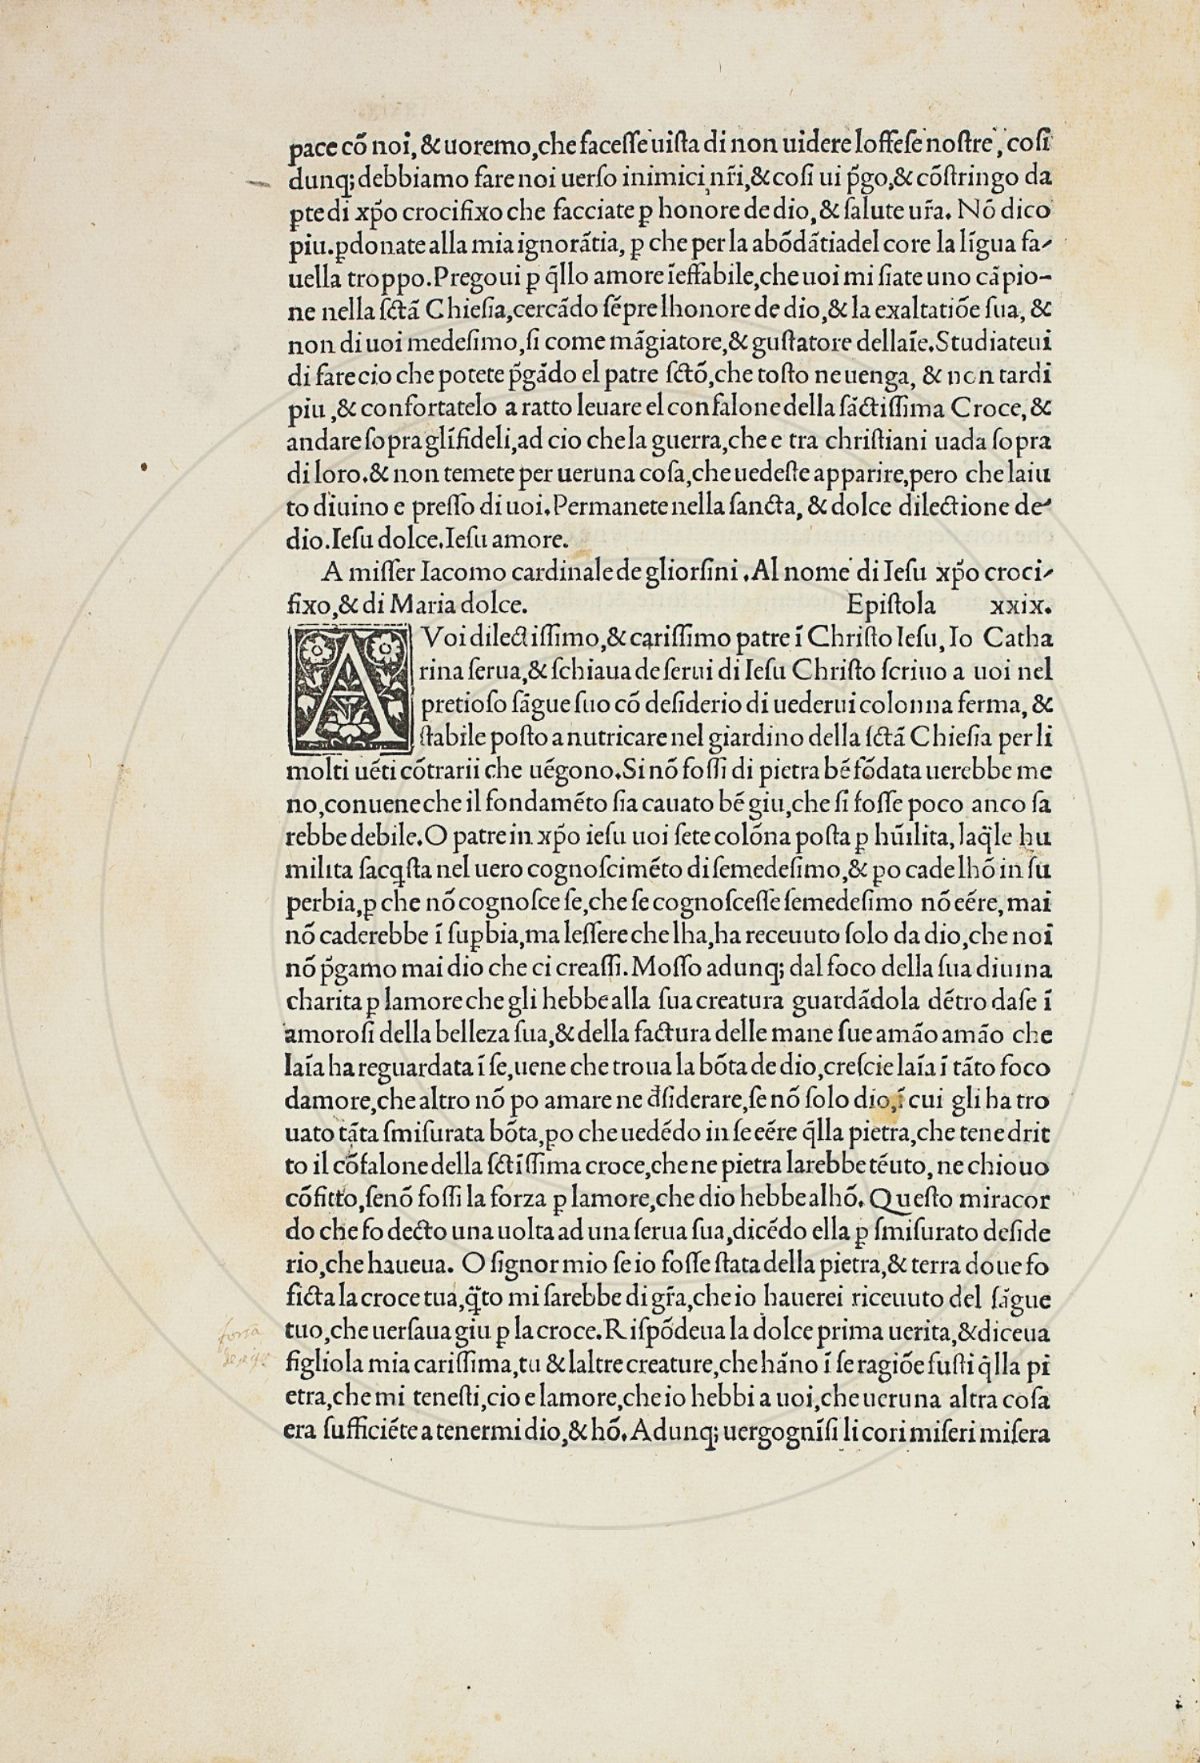 pace cõ noi, & uoremo, che faceſſe uiſta di non uidere loffeſe noſtre, coſi
dunq; debbiamo fare noi uerſo inimici nr̃i, & coſi ui p̃go, & cõſtringo da
ꝑte di xp̃o crocifixo che facciate ꝑ honore de dio, & ſalute ur̃a. Nõ dico
piu. ꝑdonate alla mia ignorãtia, ꝑ che per la abõdãtia del core la lĩgua fa⸗
uella troppo. Pregoui ꝑ q̃llo amore ĩeffabile, che uoi mi ſiate uno cãpio-
ne nella ſctã Chieſia, cercãdo ſẽpre lhonore de dio, & la exaltatiõe ſua, &
non di uoi medeſimo, ſi come mãgiatore, & guſtatore dellaĩe. Studiateui
di fare cio che potete p̃gãdo el patre ſctõ, che toſto ne uenga, & non tardi
piu, & confortatelo a ratto leuare el confalone della ſãctiſſima Croce, &
andare ſopra glĩfideli, ad cio che la guerra, che e tra chriſtiani uada ſopra
di loro. & non temete per ueruna coſa, che uedeſte apparire, pero che laiu
to diuino e preſſo di uoi. Permanete nella ſancta, & dolce dilectione de⸗
dio. Ieſu dolce. Ieſu amore.
A miſſer Iacomo cardinale de gliorſini. Al nome di Ieſu xp̃o croci⸗
fixo, & di Maria dolce. Epiſtola xxix.
A Voi dilectiſſimo, & cariſſimo patre ĩ Chriſto Ieſu, Io Catha
rina ſerua, & ſchiaua de ſerui di Ieſu Chriſto ſcriuo a uoi nel
pretioſo ſãgue ſuo cõ deſiderio di uederui colonna ferma, &
ſtabile poſto a nutricare nel giardino della ſctã Chieſia per li
molti uẽti cõtrarii che uẽgono. Si nõ foſſi di pietra bẽ fõdata uerebbe me
no, conuene che il fondamẽto ſia cauato bẽ giu, che ſi foſſe poco anco ſa
rebbe debile. O patre in xp̃o ieſu uoi ſete colõna poſta ꝑ hũilita, laq̃le hu
milita ſacqſta nel uero cognoſcimẽto di ſemedeſimo, & ꝑo cade lhõ in ſu
perbia, ꝑ che nõ cognoſce ſe, che ſe cognoſceſſe ſemedeſimo nõ eẽre, mai
nõ caderebbe ĩ ſuꝑbia, ma leſſere che lha, ha receuuto ſolo da dio, che noi
nõ p̃gamo mai dio che ci creaſſi. Moſſo adunq; dal foco della ſua diuina
charita ꝑ lamore che gli hebbe alla ſua creatura guardãdola dẽtro da ſe ĩ
amoroſi della belleza ſua, & della factura delle mane ſue amão amão che
laĩa ha reguardata ĩ ſe, uene che troua la bõta de dio, creſcie laĩa ĩ tãto foco
damore, che altro nõ po amare ne d̃ſiderare, ſe nõ ſolo dio, ĩ cui gli ha tro
uato tãta ſmiſurata bõta, ꝑo che uedẽdo in ſe eẽre q̃lla pietra, che tene drit
to il cõfalone della ſctĩſſima croce, che ne pietra larebbe tẽuto, ne chiouo
cõfitto, ſenõ foſſi la forza ꝑ lamore, che dio hebbe alhõ. Queſto miracor
do che fo decto una uolta ad una ſerua ſua, dicẽdo ella ꝑ ſmiſurato deſide
rio, che haueua. O ſignor mio ſe io foſſe ſtata della pietra, & terra doue fo
ficta la croce tua, q̃to mi ſarebbe di gr̃a, che io hauerei riceuuto del ſãgue
tuo, che uerſaua giu ꝑ la croce. Riſpõdeua la dolce prima uerita, & diceua
figliola mia cariſſima, tu & laltre creature, che hãno ĩ ſe ragiõe fuſti q̃lla pi
etra, che mi teneſti, cio e lamore, che io hebbi a uoi, che ueruna altra coſa
era ſufficiẽte a tenermi dio, & hõ. Adunq; uergognĩſi li cori miſeri miſera